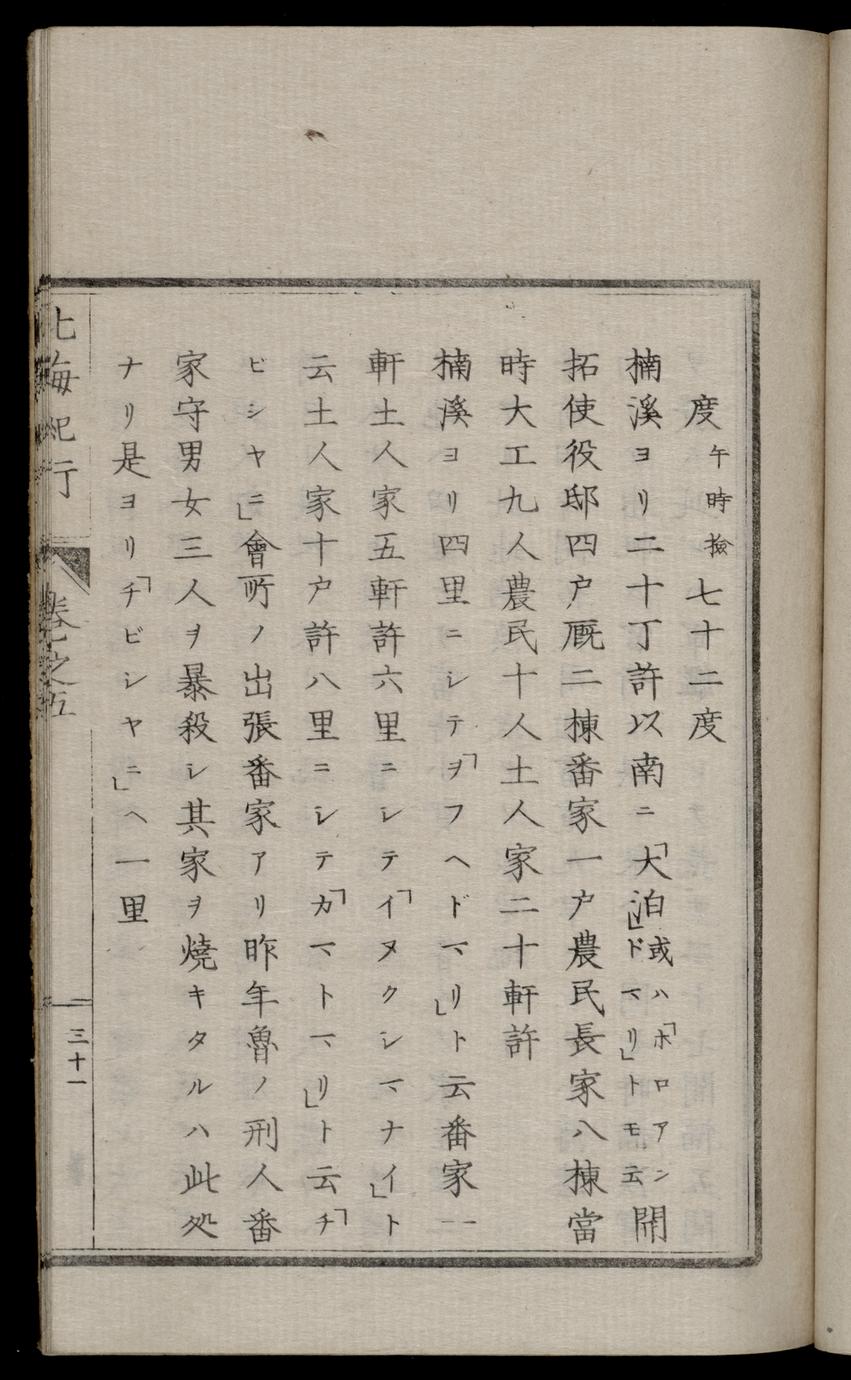 度午時撿七十二度
楠溪ヨリ二十丁許以南ニ「大泊」或ハ「ホロアンドマリ」トモ云開
拓使役邸四戸厩二棟番家一戸農民長家八棟當
時大工九人農民十人土人家二十軒許
楠溪ヨリ四里ニシテ「ヲフヘドマリ」ト云番家一
軒土人家五軒許六里ニシテ「イヌクシマナイ」ト
云土人家十戸許八里ニシテ「カマトマリ」ト云「チ
ビシヤニ」會所ノ出張番家アリ昨年魯ノ刑人番
家守男女三人ヲ暴殺シ其家ヲ燒キタルハ此処
ナリ是ヨリ「チビシヤニ」ヘ一里
北海紀行
卷之五
三十一